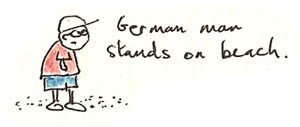 German man
stands on beach.